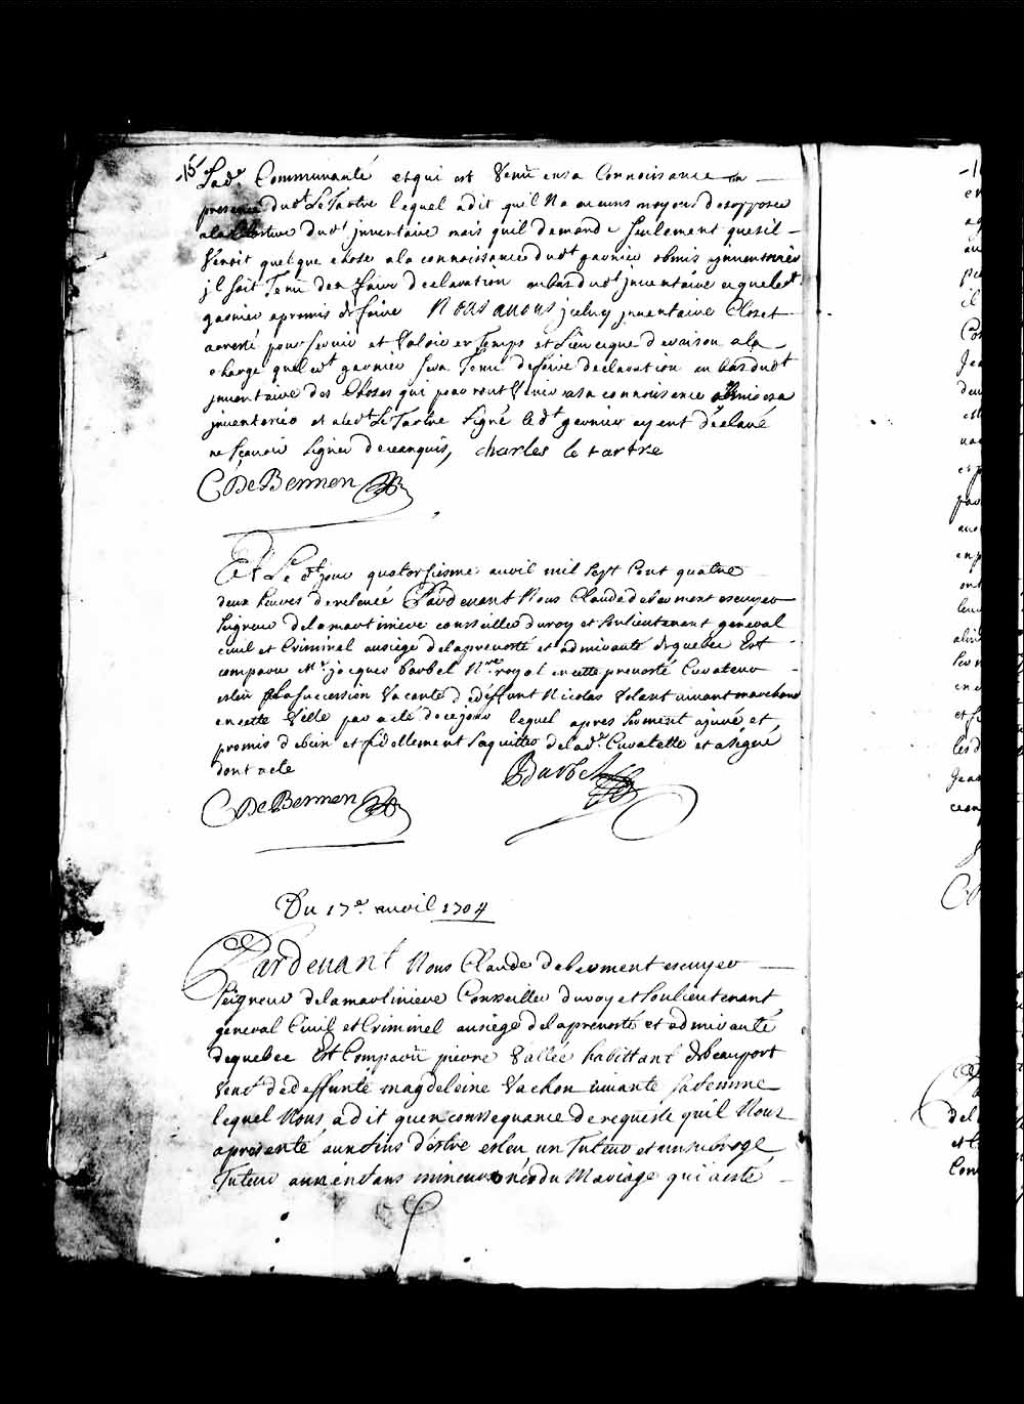 -15
Lad.e Communauté et qui est Venu en sa Connoissance en
presence dud.t Le Tartre lequel a dit quil Na aucuns moyens de sopposer
a la Closture dud.t jnventaire mais quil demande Seulement que sil
Venoit quelque chose a la connoissance dud.t garnier obmis a jnventorier
jl soit Tenu den faire declaration au bas dud.t jnventaire ce que led.t
garnier a promis de faire Nous avons jceluy jnventaire Clos et
arresté pour servir et Valoir en Temps et Lieu ce que de raison a la
charge que led.t garnier sera Tenu de faire declaration au bas dud.t
jnventaire des Choses qui pourront Venir a sa connoissance obmises a
jnventorier et a led.t Le Tartre Signé le d.t garnier ayant declaré
ne sçavoir signer de ce enquis, charles le tartre
C De Bermen
Et Le d.t jour quatorsiesme avril mil sept Cent quatre
deux heures de relevée Pardevant Nous Claude debermen escuyer
seigneur delamartiniere conseiller du roy et soulieutenant general
civil et Criminel au siege de la prevosté et admirauté de quebec Est
comparu M.r jacques barbel N.re royal en cette prevosté Curateur
esleu a la succession Vacante de deffunt Nicolas Volant vivant marchand
en cette Ville par acte de ce jour lequel apres serment a juré et
promis de bien et fidellement saquitter de lad.e Curatelle et a signé
dont acte
Barbel
C De Bermen
Du 17.e avril 1704
Pardevant Nous Claude debermen escuyer
seigneur delamartiniere Conseiller du roy et soulieutenant
general Civil et Criminel au siege de la prevosté et admirauté
de quebec Est Comparu pierre Vallée habittant de beauport
veuf de deffunte magdeleine Vachon vivante sa femme
lequel Nous a dit quen consequance de requeste quil Nous
a presenté aux fins destre esleu un Tuteur et un subrogé
Tuteur aux enfans mineurs nés du Mariage qui a esté